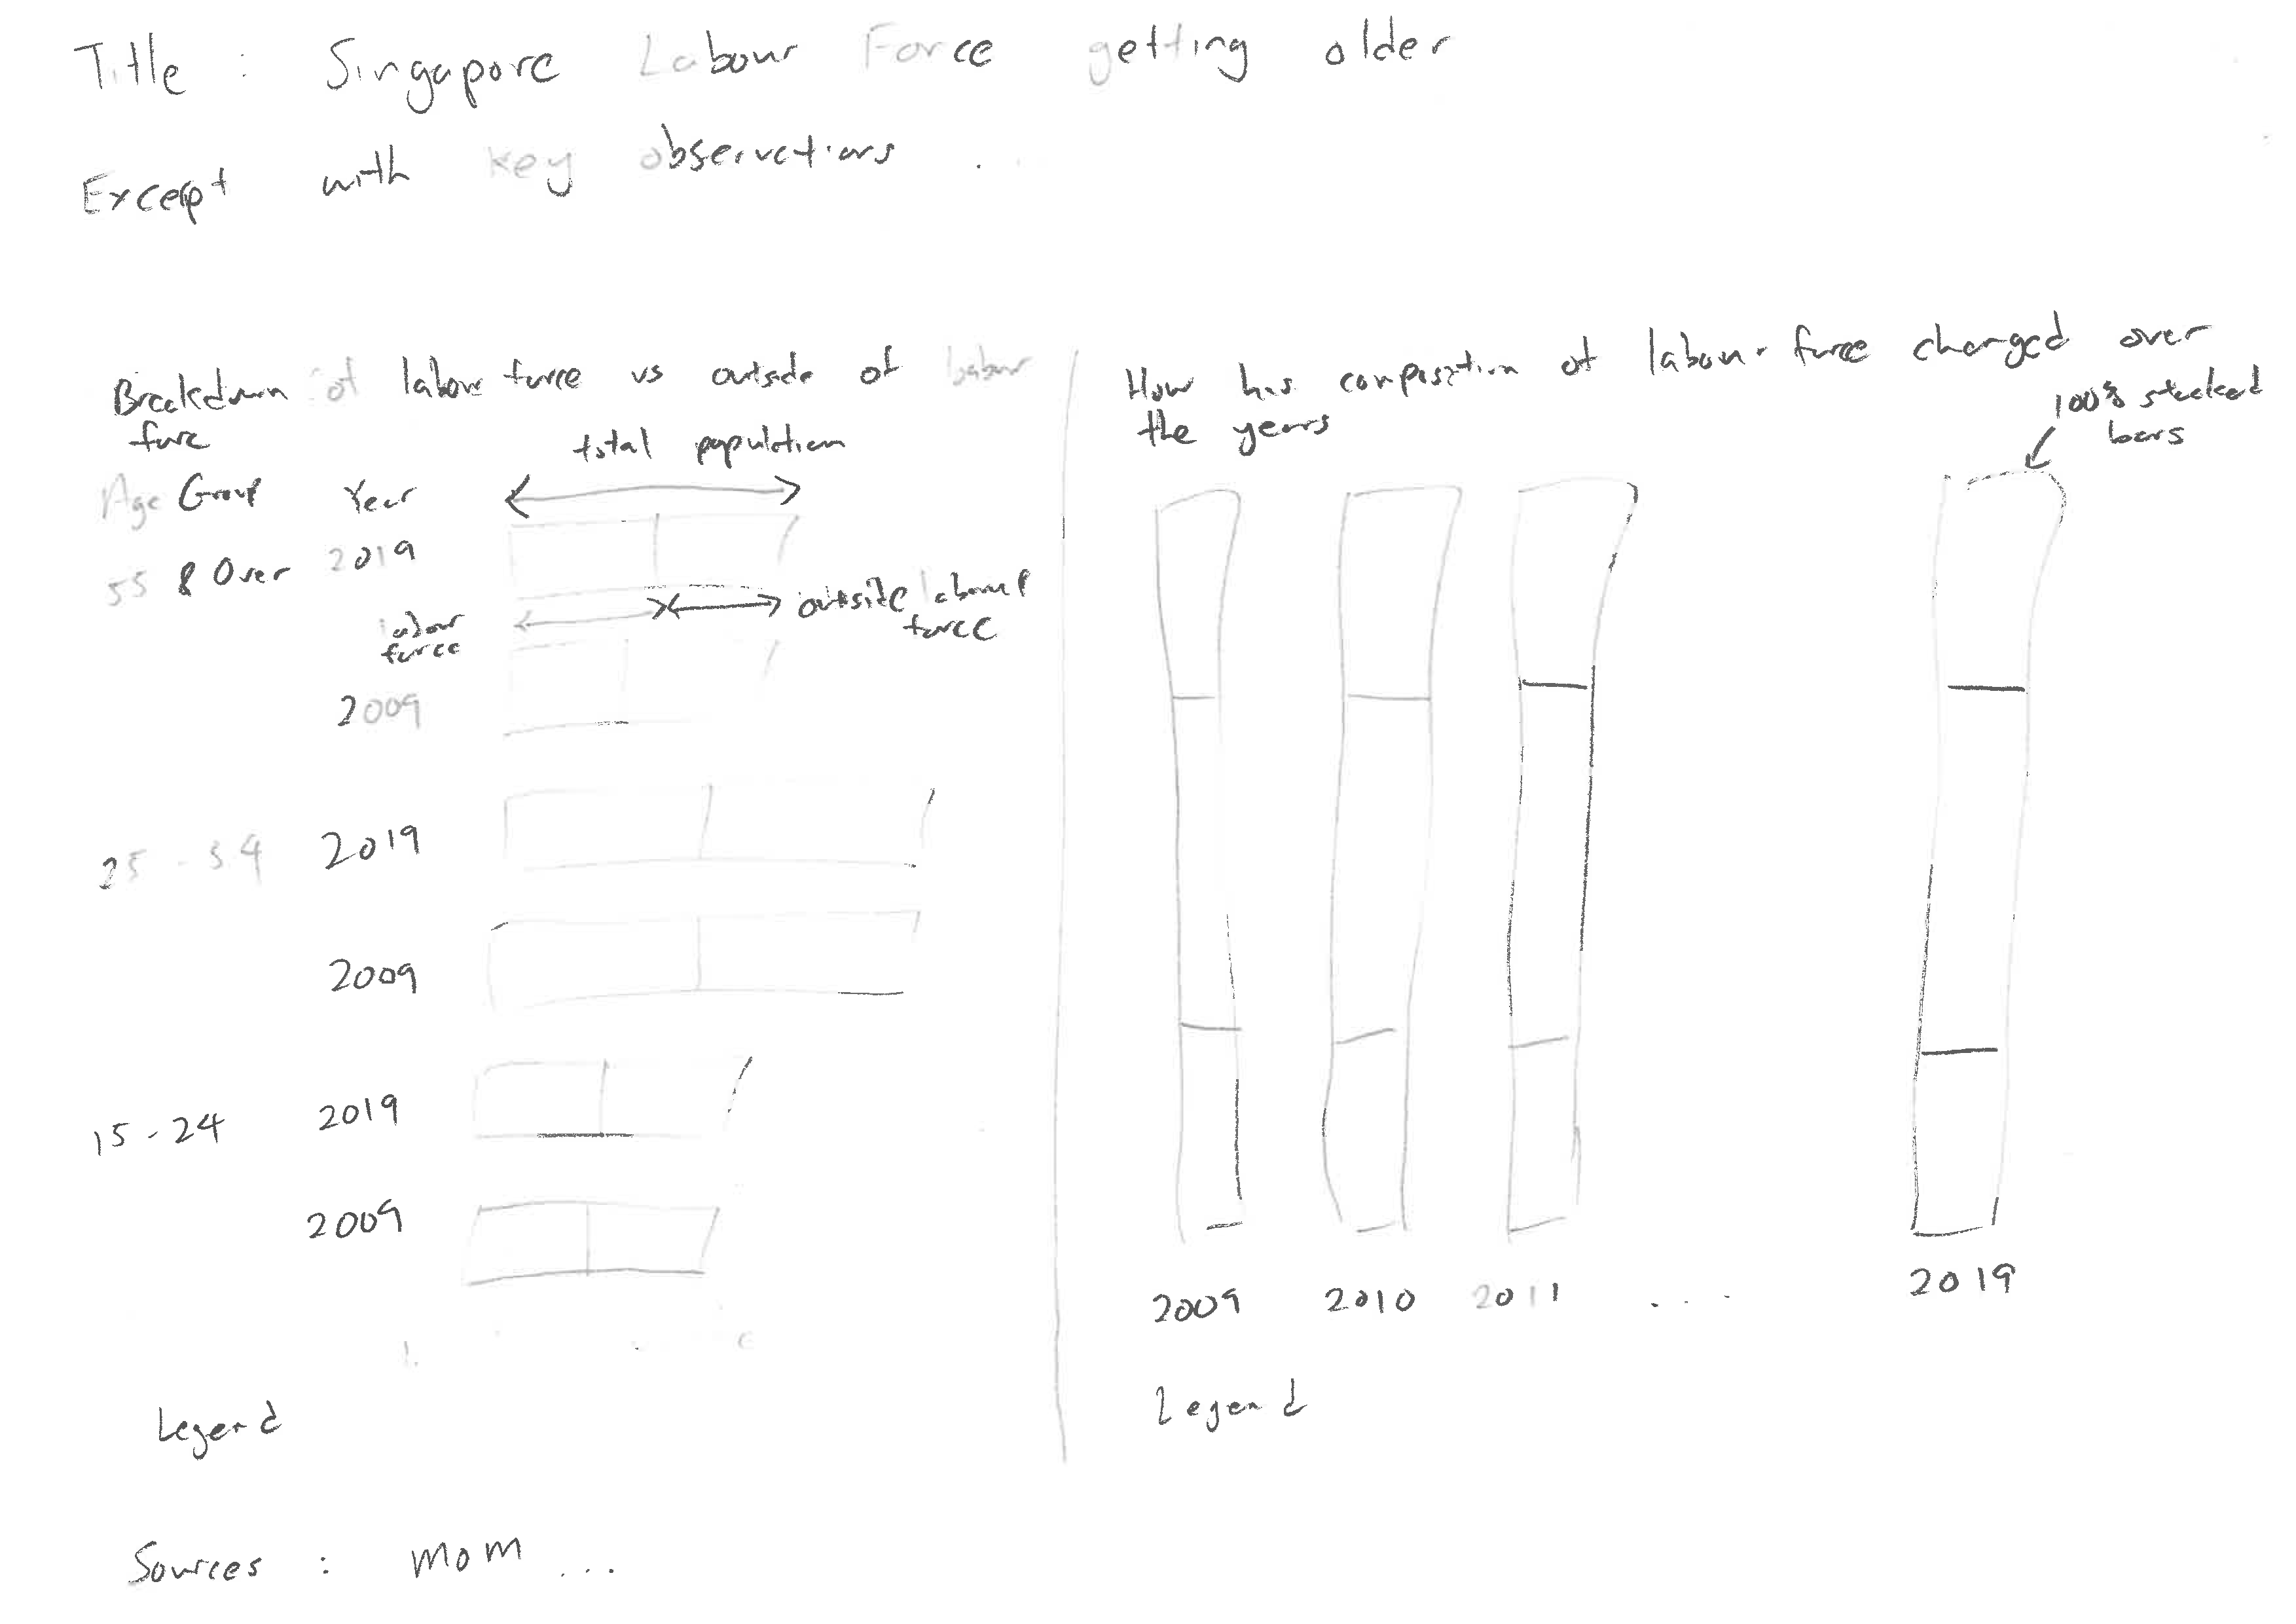 Title : Singapore Labour Force getting older
Excerpt with key observations ...
Breakdown of labour force vs outside of labour
force
total population
Age Group Year
55 & Over 2019
labour
force
outside labour
force
2009
2019
2009
15-24 2019
2009
Legend
How has composition of labour force changed over
the years
100% stacked
bars
2009 2010 2011 .... 2019
Legend
Sources : MOM ...